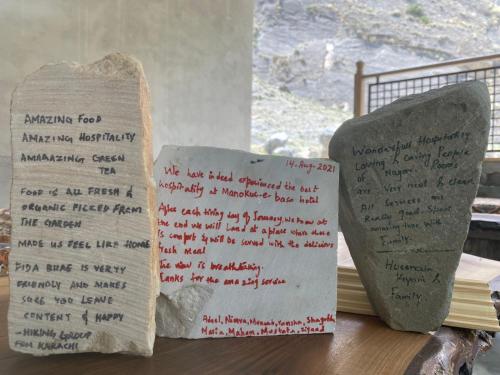 AMAZING FOOD
AMAZING HOSPITALITY
AMAAAZING GREEN
TEA
FOOD IS ALL FRESH &
ORGANIC PICKED FROM
THE GARDEN
MADE US FEEL LIKE HOME
FIDA BHAE IS VERTY
FRIENDLY AND MAKES
SURE YOU LEAVE
CONTENT & HAPPY
-HIKING GROUP
FROM KARACHI
14-Aug-2021
We have indeed experienced the best
hospitality at Manokue base hotel
After each tiring day of Journey, we know at
the end we will land at a place where there
is comfort & will be served with the delicious
fresh meal
The view is breathtaking.
Thanks for the amazing service
Adeel, Nimra, Menaal,
Maria, Maham, Mustafa, Ziyaad
Wonderfull Hospitality
Loving & Caring People
of Nagar. Rooms
are very neat & clean
All services are
Really good. Enjoyed
coming here with
Family.
Hussnain
&
Family